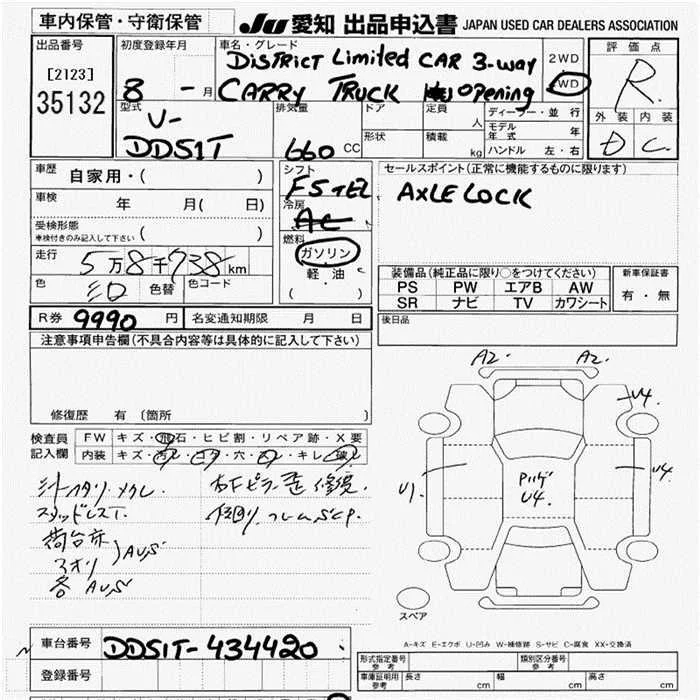 車内保管・守衛保管
JU 愛知 出品申込書 JAPAN USED CAR DEALERS ASSOCIATION
出品番号
[2123]
35132
初度登録年月
8 - 月
車名・グレード
DISTRICT Limited CAR 3-way
CARRY TRUCK Opening
2WD
4WD
評価点
R
外装 内装
D C
型式
V-
DD51T
排気量
660 CC
ドア
形状
定員
人
積載
kg
ディーラー・並行
モデル年式 年
ハンドル 左・右
車歴
自家用・( )
車検
年 月( 日)
受検形態
車検付きのみ記入して下さい ( )
走行
5万8千738km
色
シロ
色替
色コード
シフト
F5
冷房
AC
燃料
ガソリン
・
軽油
( )
セールスポイント(正常に機能するものに限ります)
AXLE LOCK
装備品(純正品に限り○をつけてください)
PS PW エアB AW
SR ナビ TV カワシート
新車保証書
有・無
R券 9990 円
名変通知期限 月 日
後日品
注意事項申告欄(不具合内容等は具体的に記入して下さい)
修復歴 有 〔箇所 〕
検査員
記入欄
FW キズ・飛石・ヒビ割・リペア跡・X要
内装 キズ・汚レ・コゲ・穴・スレ・キレ・破レ
シートヘタリ メクレ
スタッドレスT.
荷台床
アオリ
AUS
各 AUS
修復
A2
A2
U4
U4
U1
U4
スペア
A-キズ E-エクボ U-凹み W-補修跡 S-サビ C-腐食 XX-交換済
車台番号
DD51T-434420
登録番号
形式指定番号
参考
類別区分番号
参考
車庫証明用
参考
長さ cm
幅 cm
高さ cm